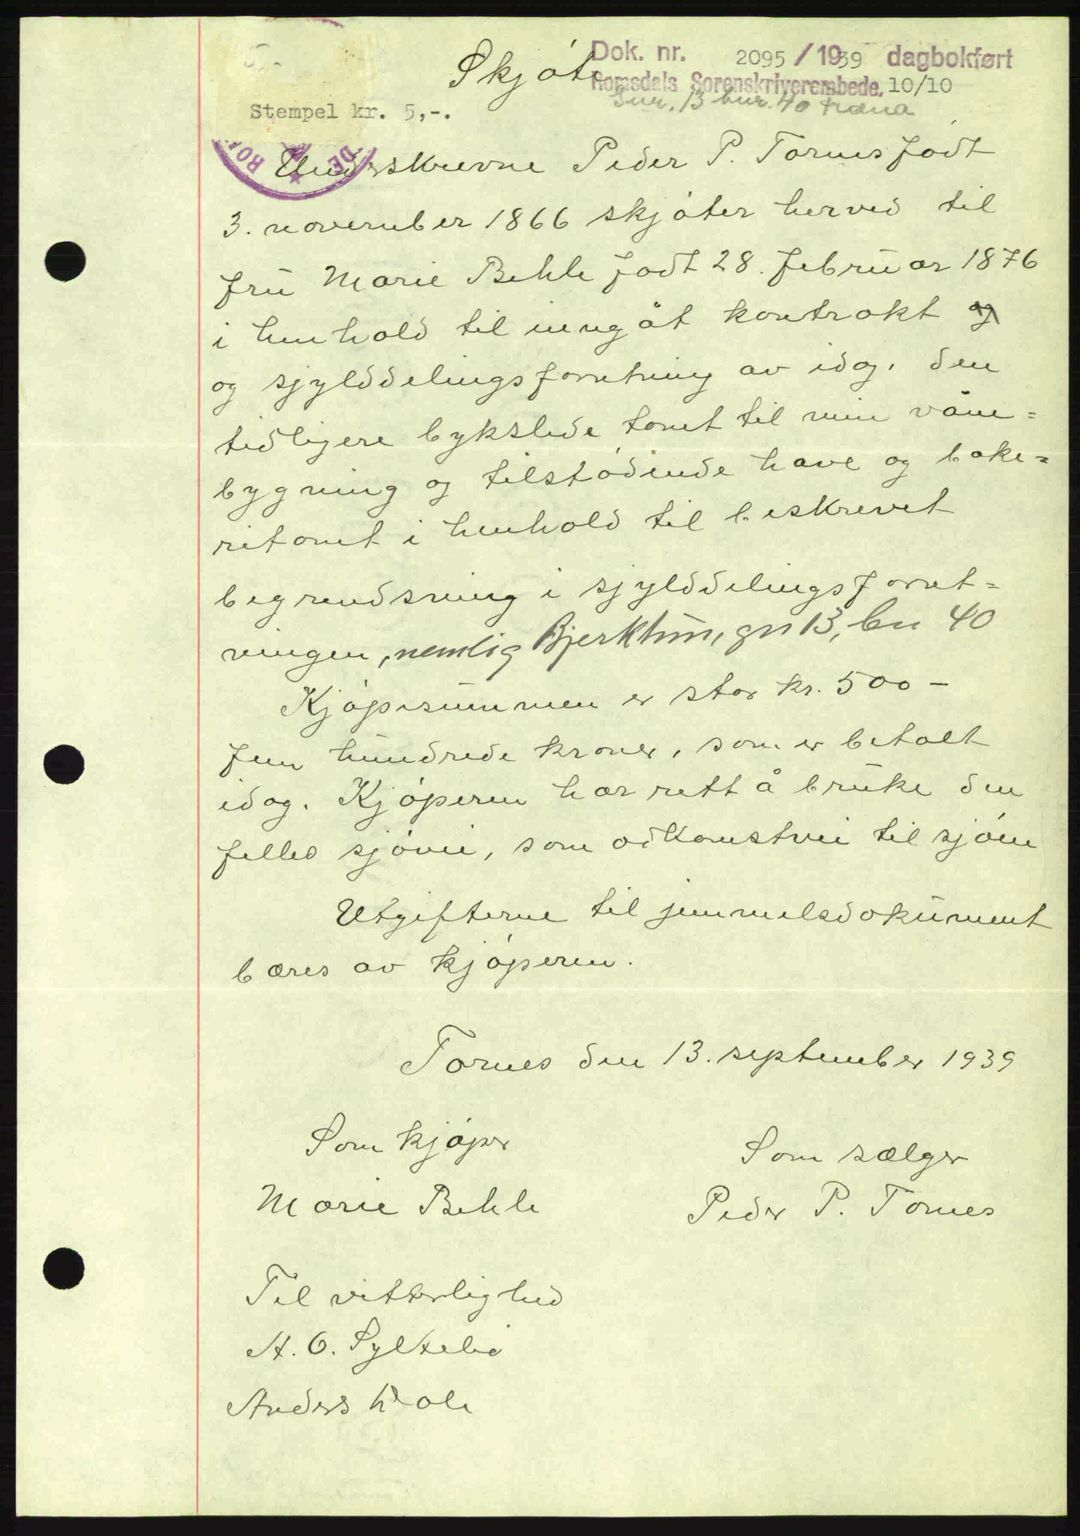 Skjøte
Dok. nr. 2095 / 1939 dagbokført
Romsdals Sorenskriverembede. 10/10
Gnr. 13 bnr. 40 Fræna
Stempel kr. 5,-.
Underskrevne Peder P. Tornes født
3. november 1866 skjøter herved til
fru Marie Behle født 28. februar 1876
i henhold til inngåt kontrakt og
og skylddelingsforretning av idag. den
tidligere bykslede tomt til min våne=
bygning og tilstødende have og bake=
ritomt i henhold til beskrevet
begrendsning i skylddelingsforret=
ningen, nemlig Bjerktun, gn 13, bn 40
Kjøpesummen er stor kr. 500 –
fem hundrede kroner, som er betalt
idag. Kjøperen har rett å bruke den
felles sjøvei, som adkomstvei til sjøen
Utgifterne til jemmelsdokument
bæres av kjøperen.
Tornes den 13. september 1939
Som kjøper
Som sælger
Marie Behle
Peder P. Tornes
Til vitterlighed
A. O. Syltebø
Anders Wole